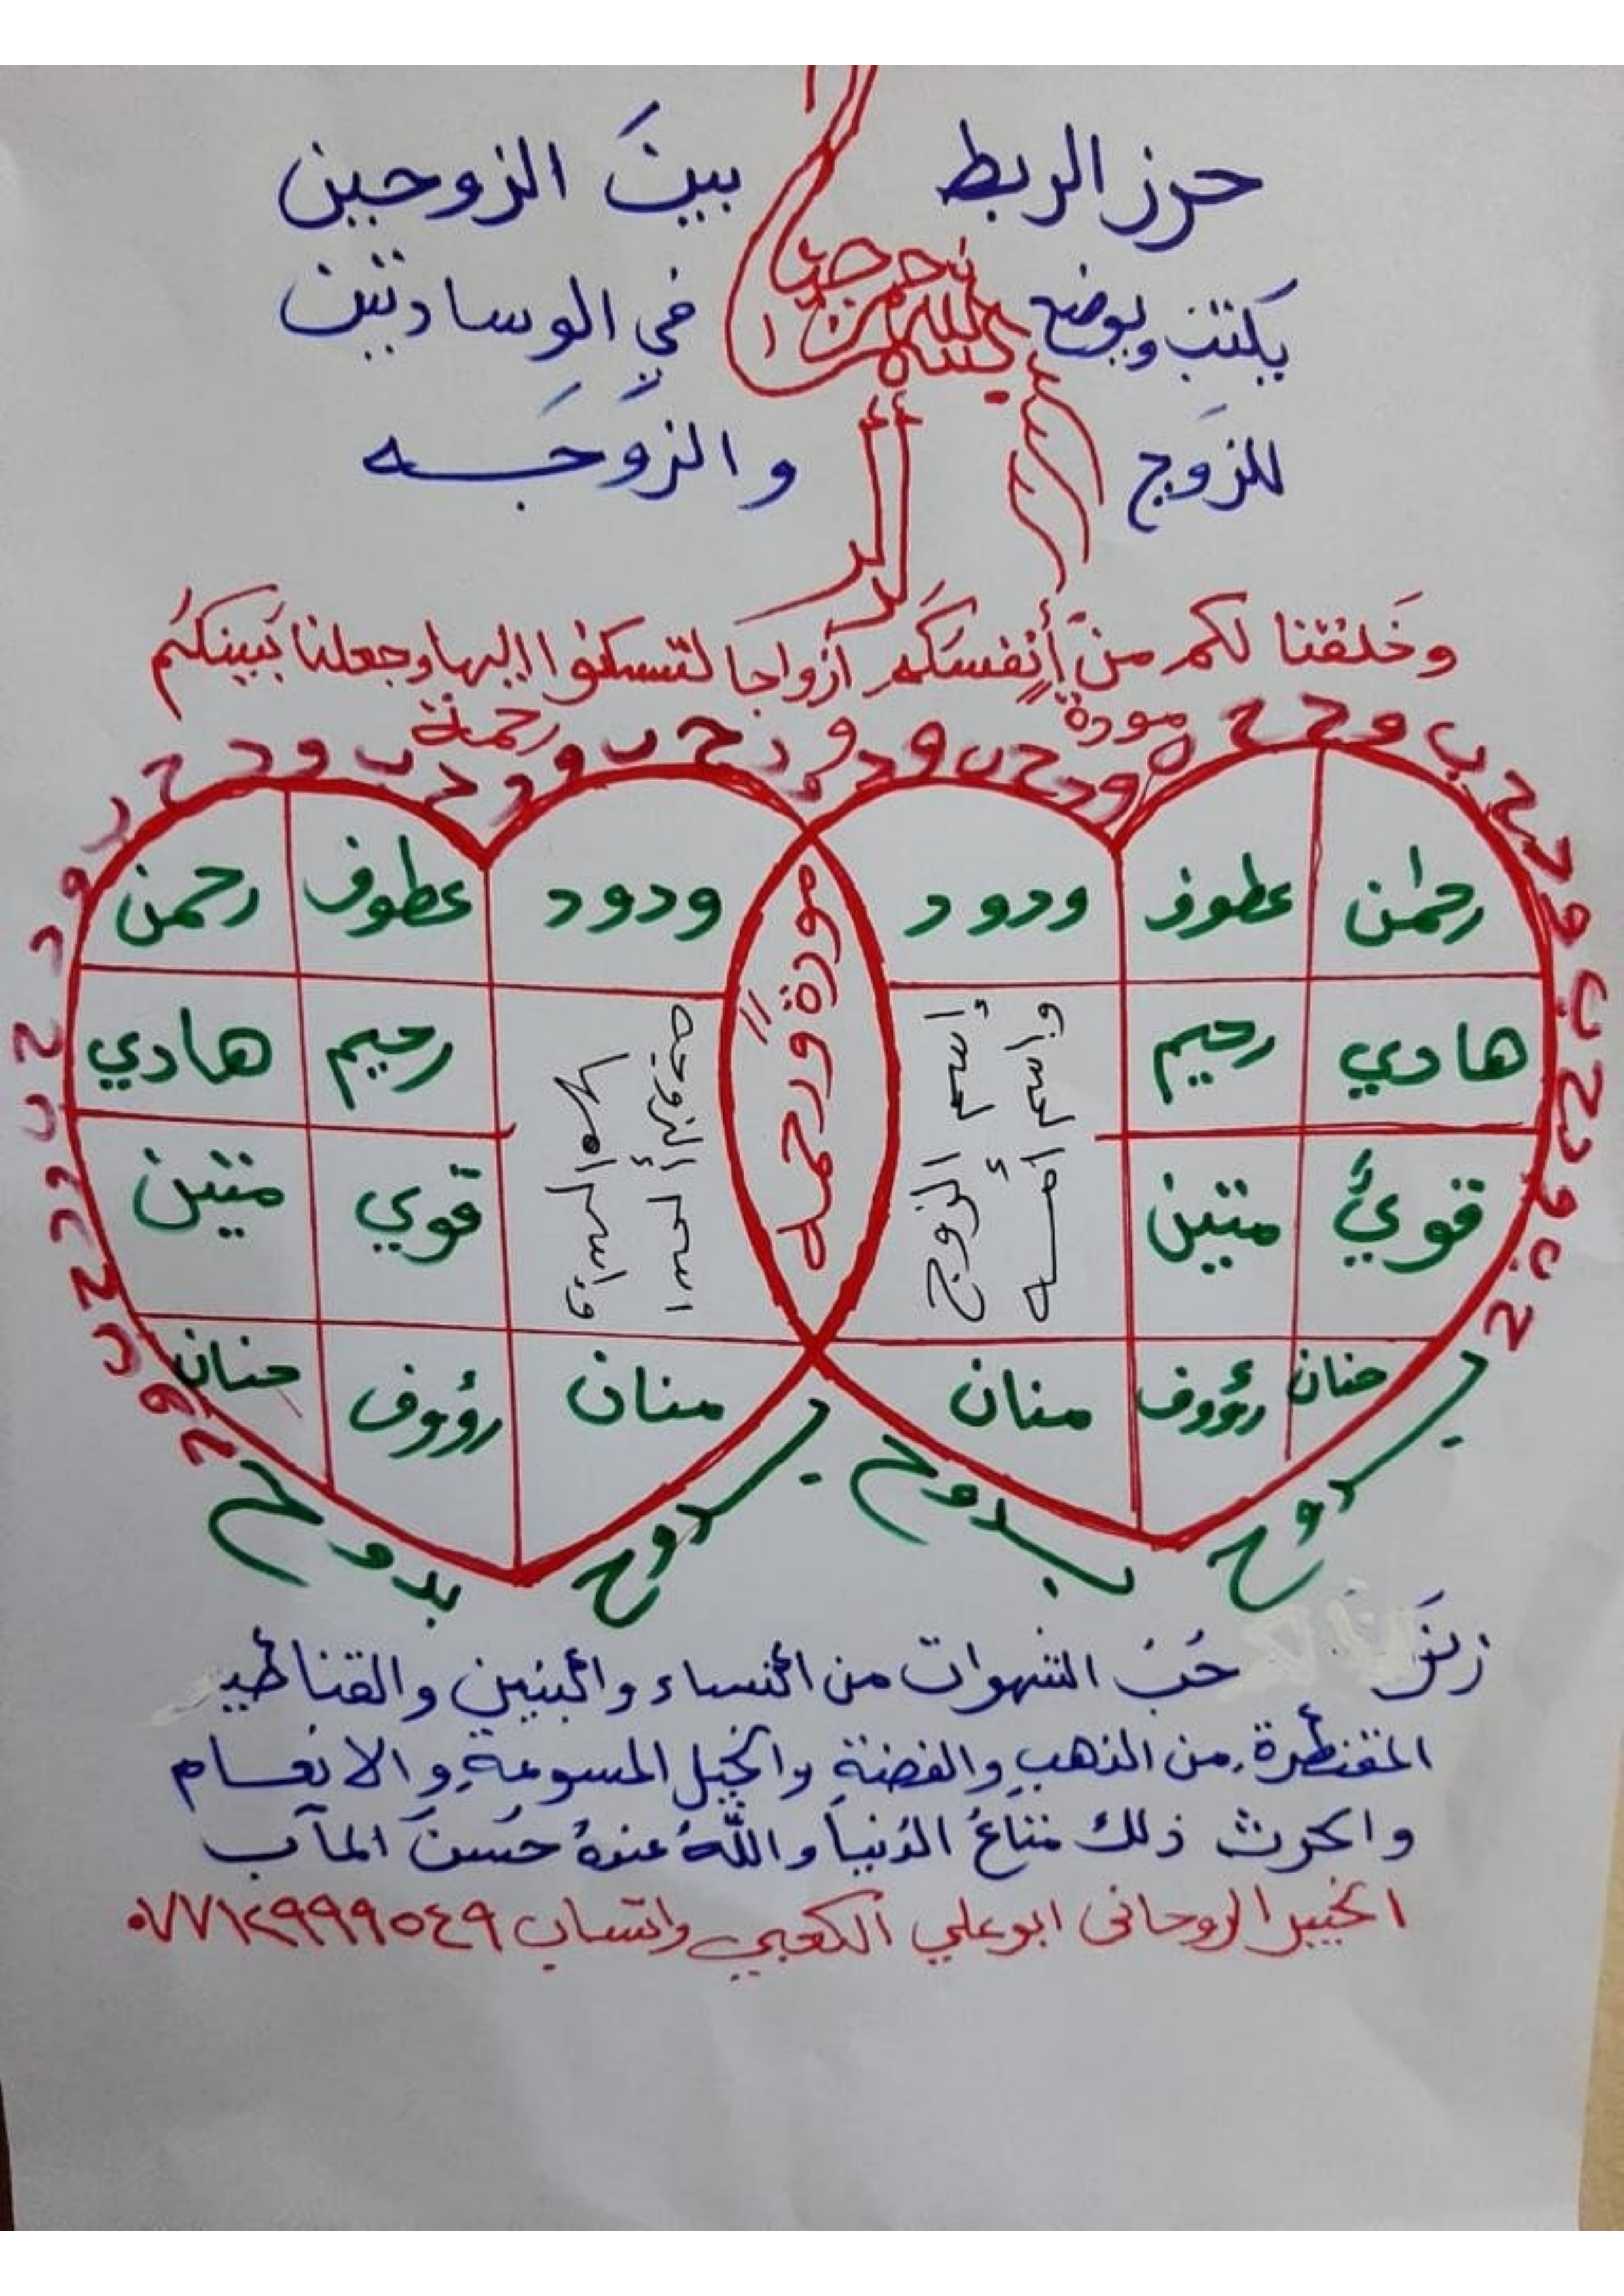 حرز الربط بينَ الزوجين
يكتب ويوضع في الوسادتين
للزوج والزوجَه
وخَلقنا لكم من أنفسكم ازواجا لتسكنوا اليها وجعلنا بَينكُم
مودة رحمة
رحمٰن عطوف ودود
ودود عطوف رحمن
هادي رحيم
رحيم هادي
قويٌ متين
قوي متين
إسم الزوج
وإسم أمه
اسم الزوجه
وإسم امها
مودةً ورحمه
حنان رؤوف منان
منان رؤوف حنان
بدوح بدوح بدوح بدوح
زينَ حُبُ الشهوات من النساء والبنين والقناطير
المقنطرة من الذهبِ والفضةِ والخيل المسومةِ والانعام
والحرث ذلك متاعُ الدُنيا واللّهُ عندهُ حُسنَ المآب
الخبير الروحاني ابوعلي الكعبي واتساب ٠٧٧١٢٩٩٩٥٤٩